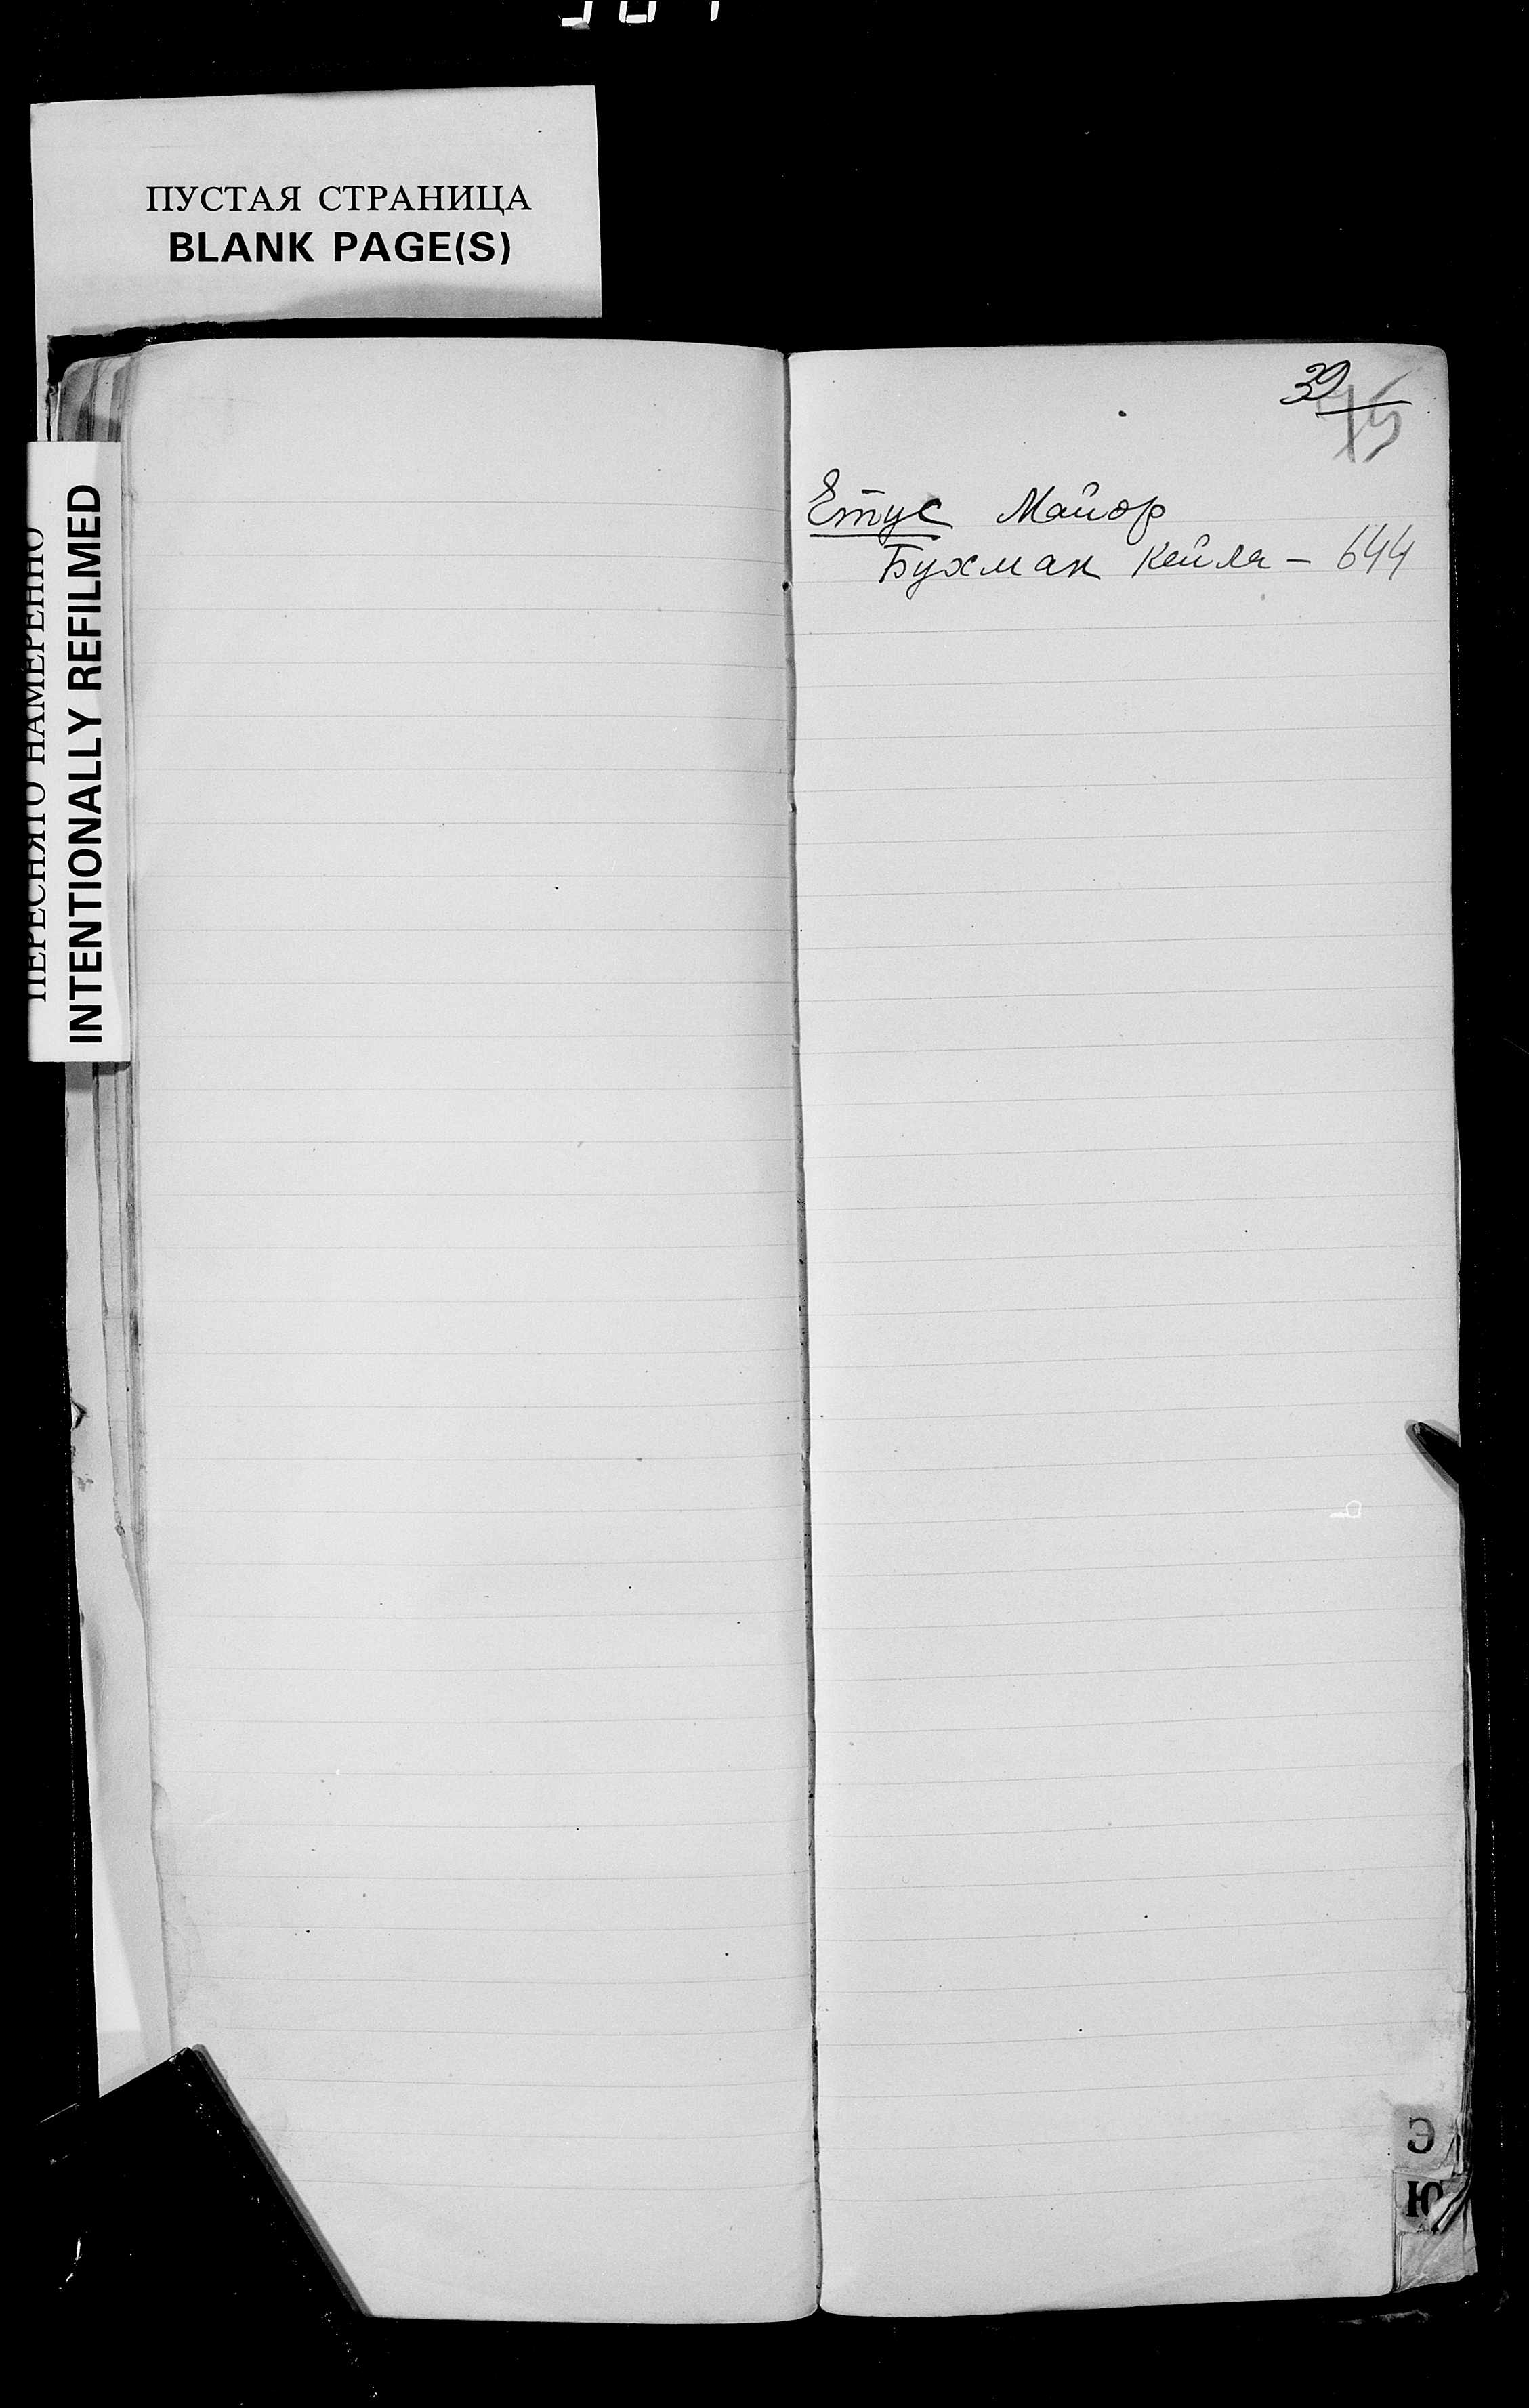 ПУСТАЯ СТРАНИЦА
BLANK PAGE(S)
ПЕРЕСНЯТО НАМЕРЕННО
INTENTIONALLY REFILMED
39
75
Етус Майор
Бухман Кейла - 644
Э
Ю